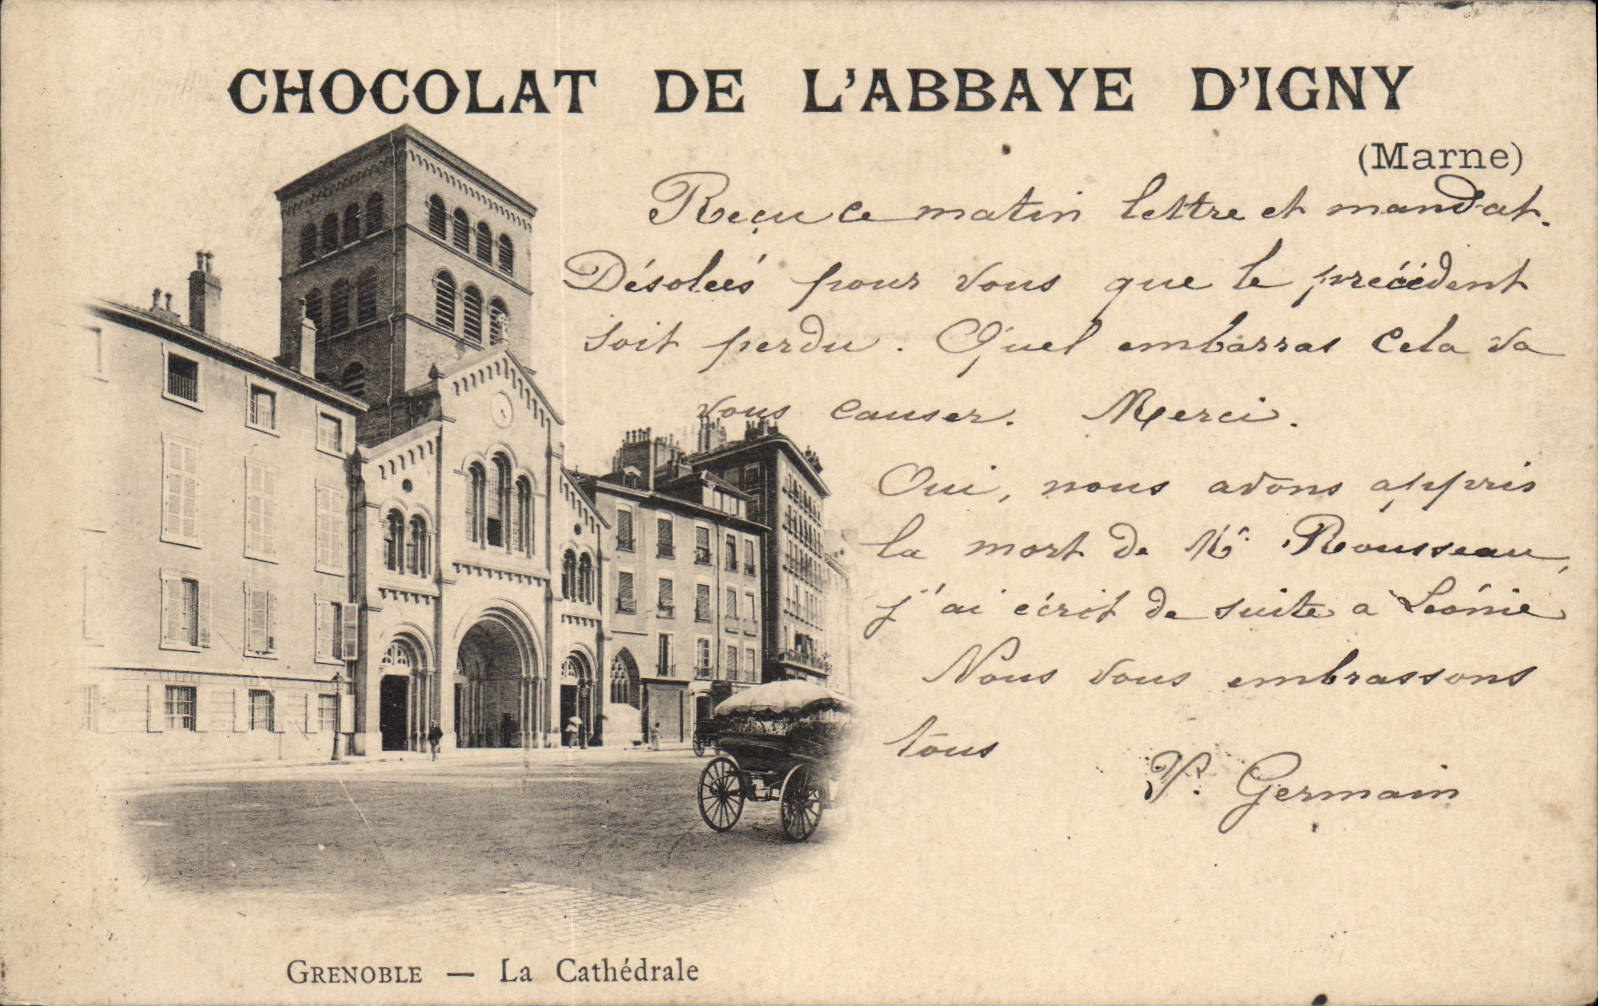 CHOCOLAT DE L'ABBAYE D'IGNY
(Marne)
Reçu ce matin lettre et mandat.
Désolées pour vous que le précédent
soit perdu. Quel embarras cela va
vous causer. Merci.
Oui, nous avons appris
la mort de Mr. Rousseau,
j'ai écrit de suite a Léonie
Nous vous embrassons
tous
V. Germain
GRENOBLE — La Cathédrale